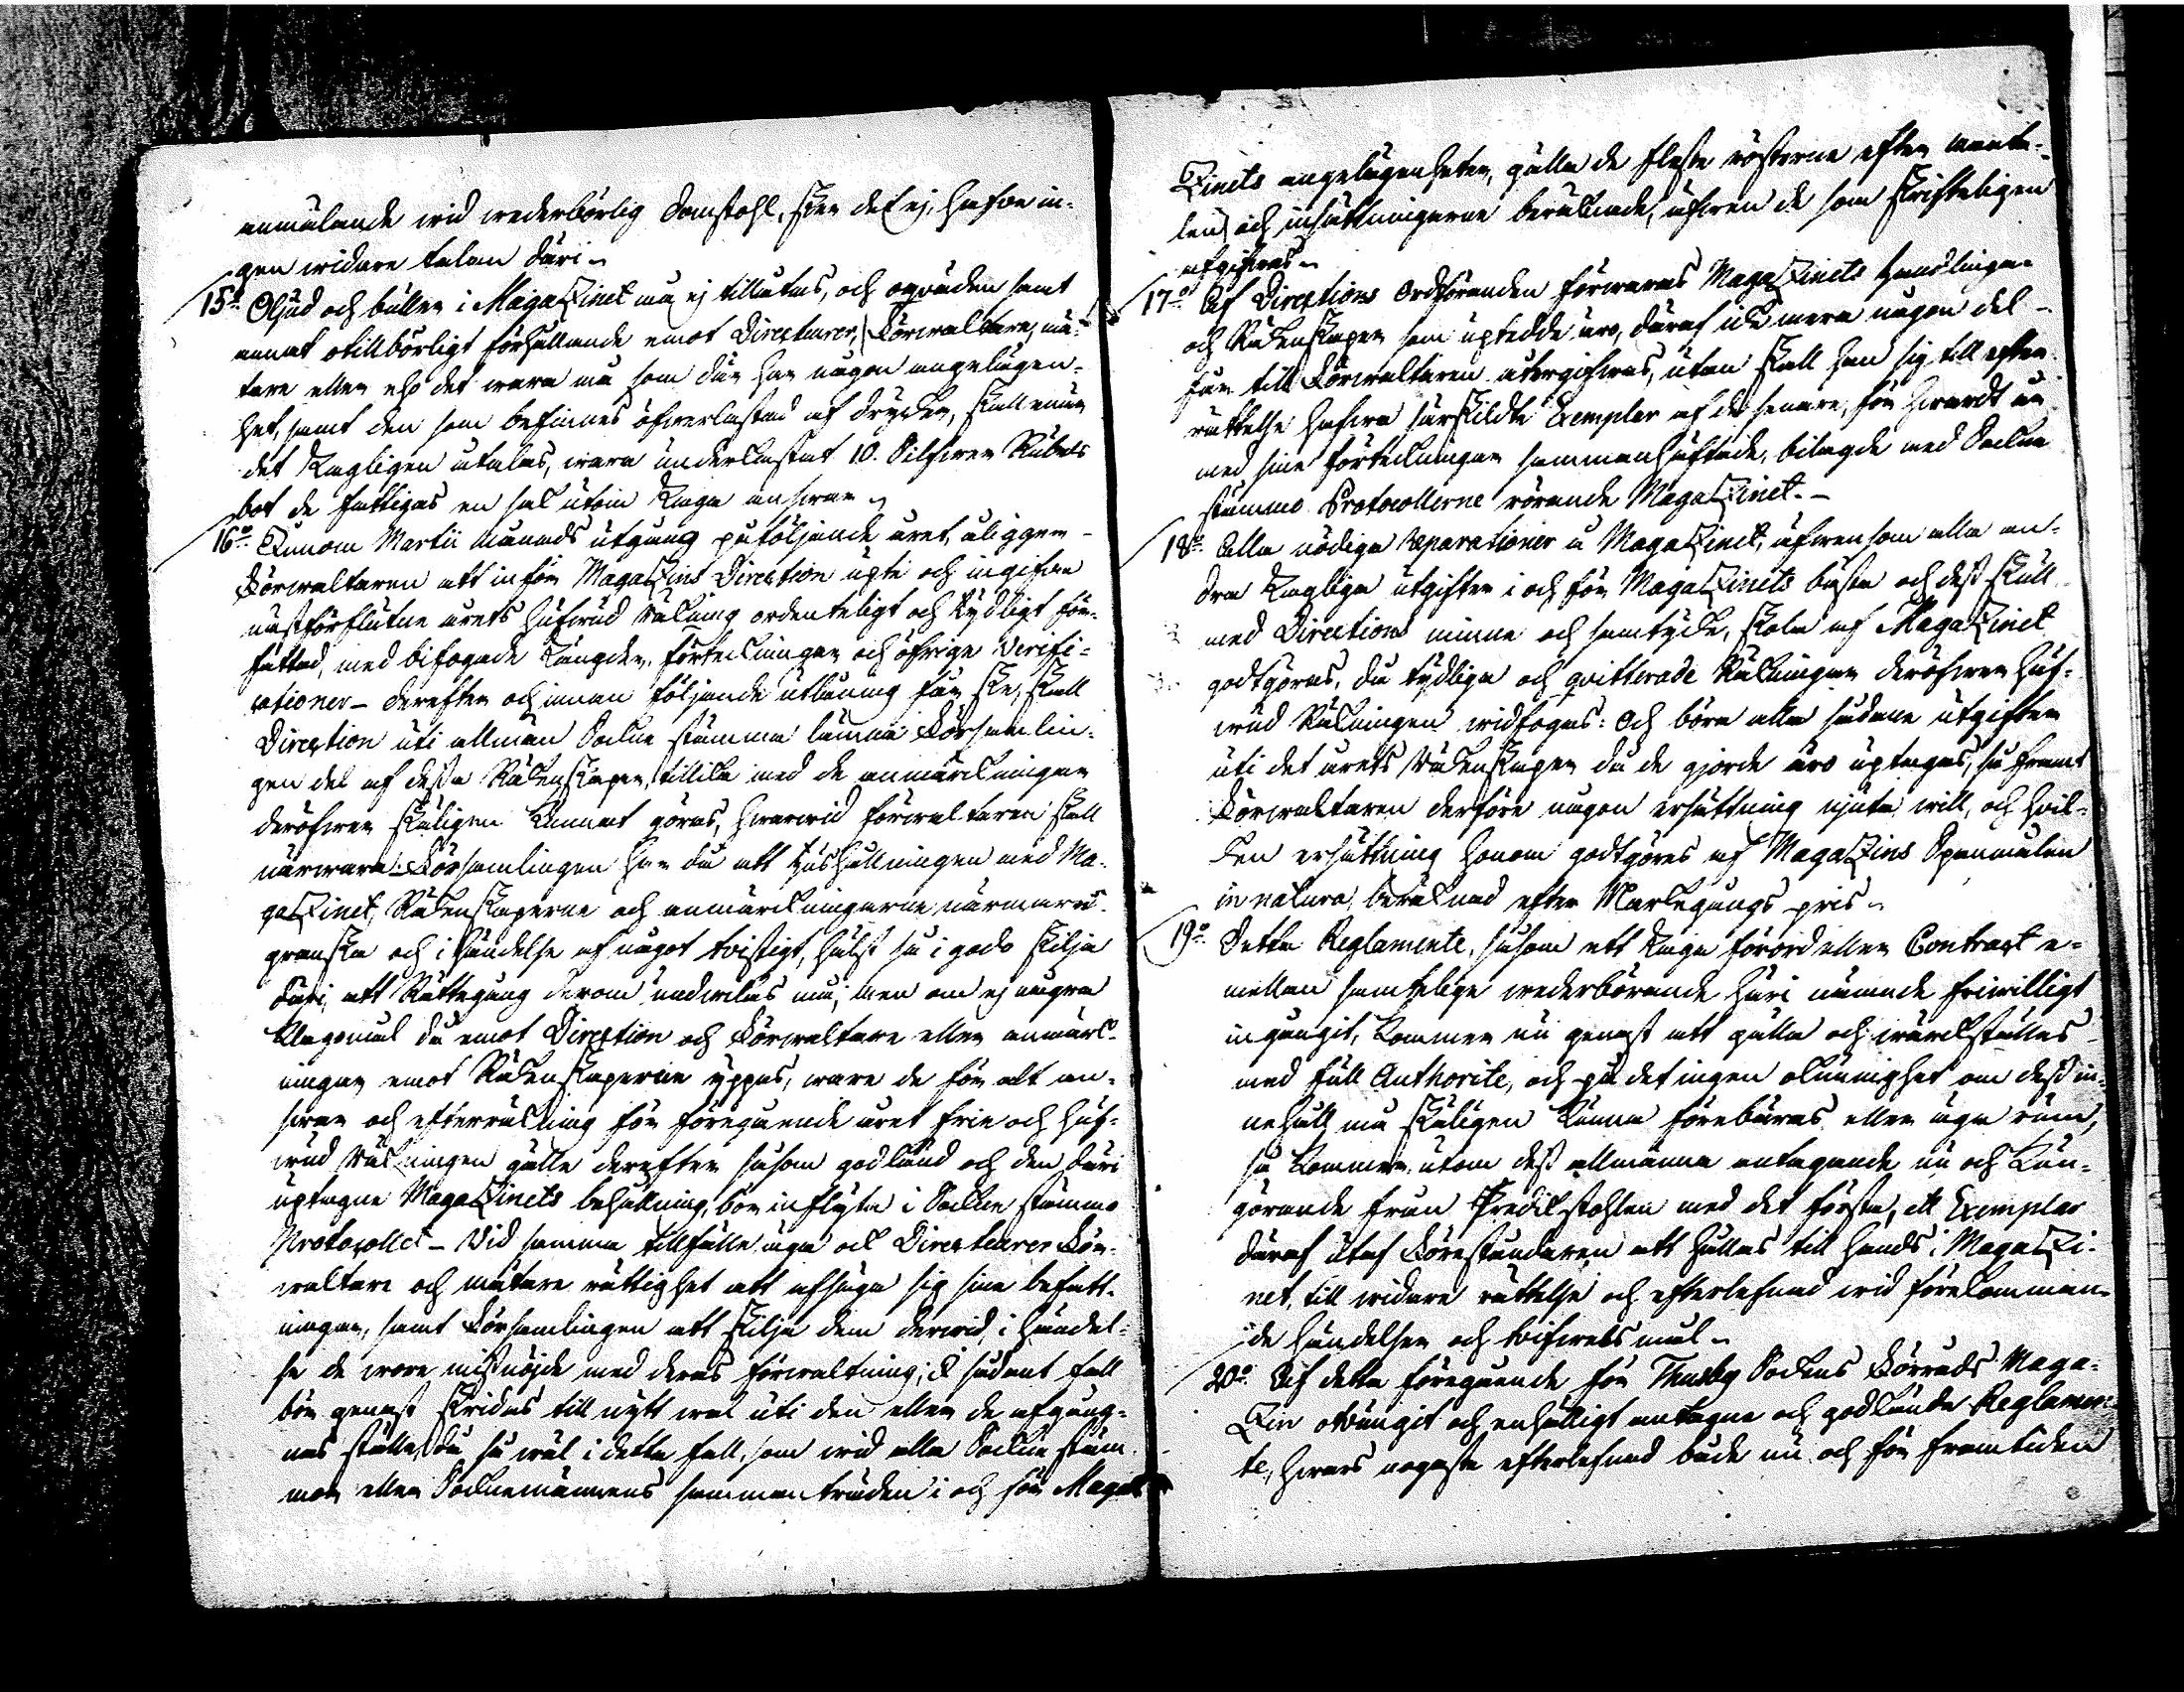 anmälande wid wederbörlig Domstohl, sker det ej, hafwe in-
gen widare talan däri.
15:o Oljud och buller i Magazinet må ej tillåtas, och oqväden samt
annat otillbörligt förhållande emot Directeurer, Förwaltare, mä-
tare eller eho det wara må som där har någon angelägen-
het, samt den som befinnes öfwerlastad af drycker, skall enär
det Lagligen utalas, wara underkastat 10. Silfwer Rubels
bot de fattigas en sak utom Laga answar.
16:o Innom Martii månads utgång påföljande året, åligger
Förwaltaren att inför Magazins Direction upte och ingifwa
nästförflutne årets Hufwud räkning ordenteligt och tydligt för-
fattad, med bifogade Längder, förteckningar och öfrige Verifi-
cationer – derefter och innan följande utlåning får ske, skall
Direction uti allmän Sockne stämma lämna Församlin-
gen del af dessa Räkenskaper, tillika med de anmärckningar
deröfwer skäligen kunnat göras, hwarwid förwaltaren skall
närwara. Församlingen har då att hushållningen med Ma-
gazinet, Räkenskaperne och anmärckningarne närmare
granska och i händelse af något twistigt, hälst så i godo skilja
däri, att Rättegång derom undwikas må; men om ej några
klagomål då emot Direction och Förwaltare eller anmärk-
ningar emot Räkenskaperne yppas, ware de för alt an-
swar och efterräkning för föregående året frie och Huf-
wud räkningen gälle derefter såsom godkänd och den däri
uptagne Magazinets behållning, bör inflyta i Sockne stämmo
Protocollet – Vid samma tillfälle äga ock Directeurer För-
waltare och mätare rättighet att afsäga sig sine befatt-
ningar, samt Församlingen att skilja dem derwid, i händel-
se de wore missnöjde med deras förwaltning; I sådant fall
bör genast skridas till nytt wal uti den eller de afgång-
nas ställe, då så wäl i detta fall, som wid alla Sockne stäm-
mor eller Socknemännens sammanträden i och för Maga-
zinets angelägenheter, gälla de fleste rösterne efter mante-
len och insättningarne beräknade, äfwen de som skrifteligen
afgifwas.
17:o Af Directions Ordföranden förwaras Magazinets Handlingar
och Räkenskaper som uptedde äro, däraf icke mera någon del
får till Förwaltaren återgifwas, utan skall han sig till efter-
rättelse hafwa särskildte Exemplar af de senare, för hwardt år
med sine förteckningar sammanhäftade, bilagde med Sockne
stämmo Protocollerne rörande Magazinet.–
18:o Alla nödiga Reparationer å Magazinet, äfwensom alla an-
dra Lagliga utgifter i och för Magazinets bästa och dess skull
med Directions minne och samtycke, skola af Magazinet
godtgöras, då tydliga och qvitterade Räkningar deröfwer Huf-
wud Räkningen widfogas: Och böra alla sådane utgifter
uti det årets Räkenskaper då de gjorde äro uptagas, så framt
Förwaltaren derföre någon ersättning njuta will, och hvil-
ken ersättning honom godtgöres af Magazins Spanmålen
in natura, beräknad efter Markegångs pris.
19:o Detta Reglemente, såsom ett Laga förord eller Contract e-
mellan samtelige wederbörande häri nämnde friwilligt
ingångit, kommer nu genast att gälla och wärckställas
med full Authorité, och på det ingen okunnighet om dess in-
nehåll må skäligen kunna förebäras eller äga rum,
så kommer, utom dess allmänna antagande nu och kun-
görande från Predikstohlen med det första, ett Exemplar
däraf utaf Föreståndaren att hållas till hands i Magazi-
net, till widare rättelse och efterlefnad wid förekomman-
de händelser och twifwels mål.
20:o Af detta föregående för Thusby Sockens Förråds Maga-
zin otvungit och enhälligt antagne och godkände Reglemen-
te, hwars nogaste efterlefnad både nu och för framtiden